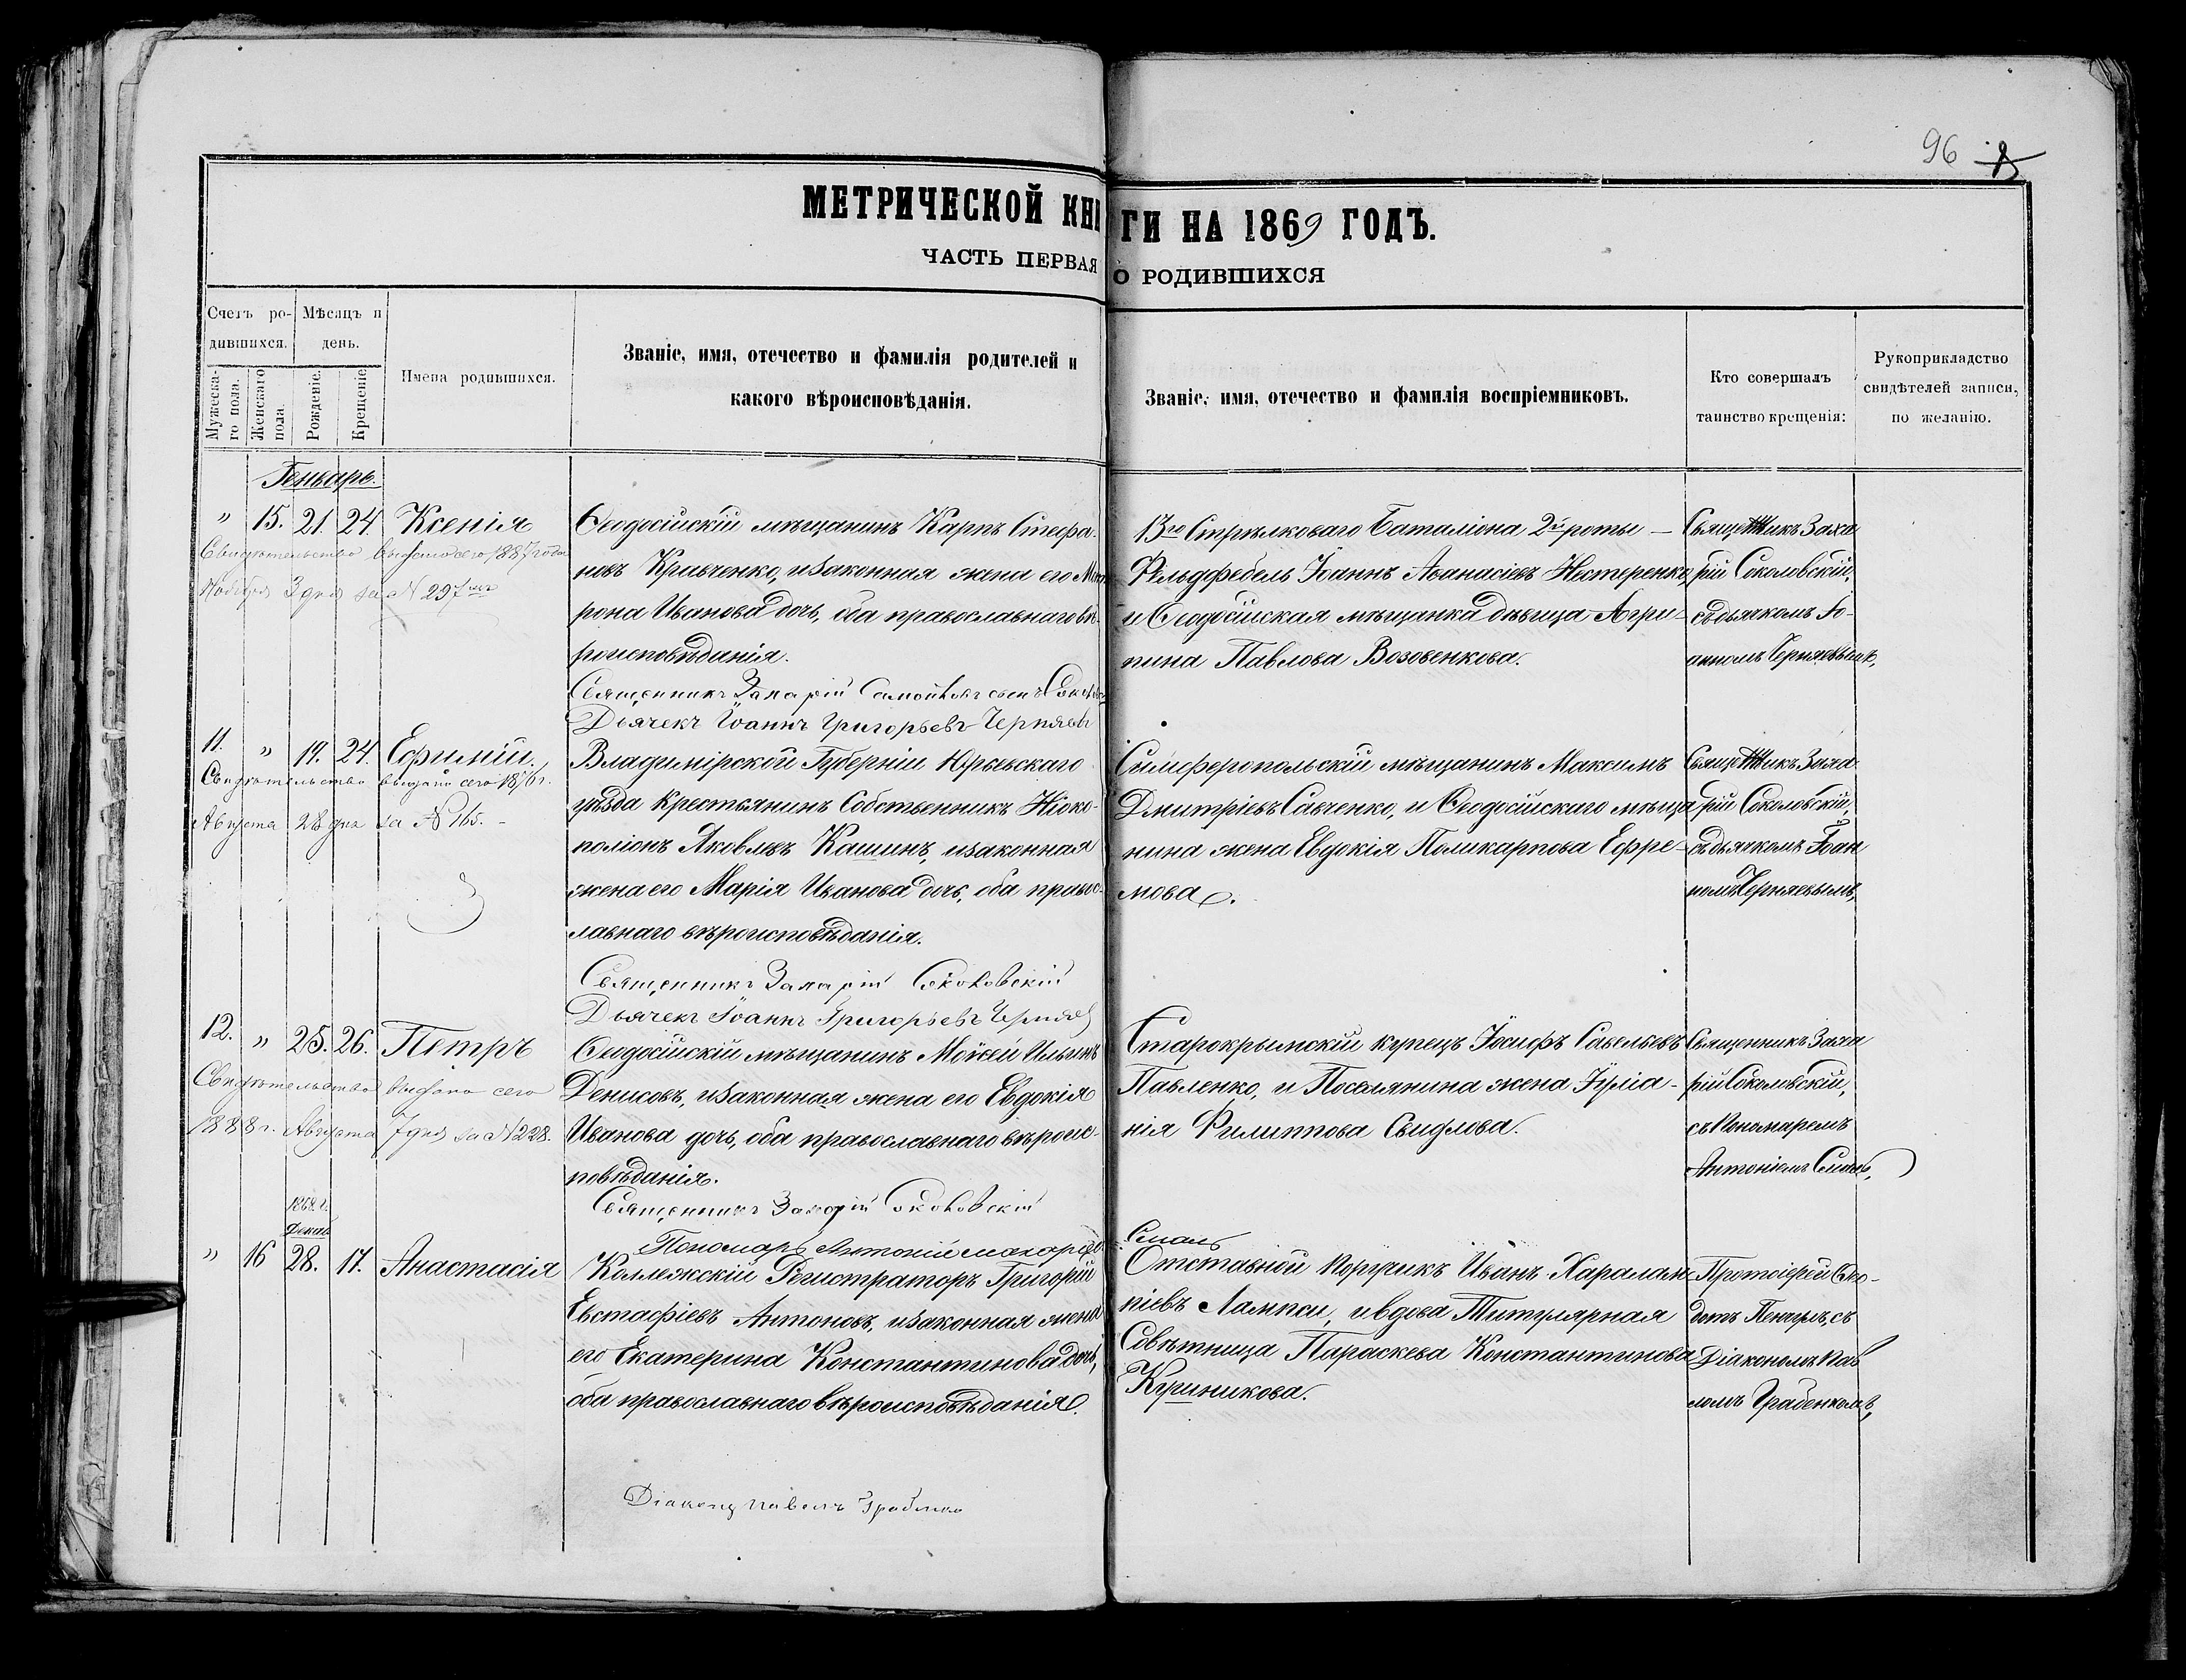 96
МЕТРИЧЕСКОЙ КНИГИ НА 1869 ГОДЪ.
ЧАСТЬ ПЕРВАЯ О РОДИВШИХСЯ
Счетъ ро-
дившихся.
Мужеска-
го пола.
Женскаго
пола.
Мѣсяцъ и
день.
Рожденіе.
Крещеніе.
Имена родившихся.
Званіе, имя, отечество и фамилія родителей и
какого вѣроисповѣданія.
Званіе, имя, отечество и фамилія воспріемниковъ.
Кто совершалъ
таинство крещенія:
Рукоприкладство
свидѣтелей записи,
по желанію.
Генварь.
" 15. 21. 24. Ксенія
Свидѣтельство выдано сего 1887 года
Ноября 3 дня за № 297
Ѳеодосійскій мѣщанинъ Карпъ Стефа-
новъ Кривченко, и законная жена его Мат
рона Иванова дочь, оба православнаго вѣ-
роисповѣданія.
Священникъ Захарій Самойловъ сынъ
Дьячекъ Іоаннъ Григорьевъ Черняевъ
13го Стрѣлковаго Баталіона 2й роты —
Фельдфебель Іоаннъ Аѳанасіевъ Нестеренко,
и Ѳеодосійская мѣщанка дѣвица Агри-
пина Павлова Возовенкова.
Священникъ Заха
рій Соколовскій,
съ дьячкомъ Іо-
анномъ Черняевымъ,
11. " 19. 24. Ефимій.
Свидѣтельство выдано сего 1876 г.
Августа 28 дня за № 165.
Владимірской Губерніи Юрьевскаго
уѣзда Крестьянинъ Собственникъ Ніоко-
поліонъ Яковлевъ Кашинъ, и законная
жена его Марія Иванова дочь, оба правос-
лавнаго вѣроисповѣданія.
Священникъ Захарій Соколовскій
Дьячекъ Іоаннъ Григорьевъ Черняев
Симферопольскій мѣщанинъ Максимъ
Дмитріевъ Савченко, и Ѳеодосійскаго мѣща
нина жена Евдокія Поликарпова Ефре-
мова.
Священникъ Заха
рій Соколовскій,
съ дьячкомъ Іоан
номъ Черняевымъ,
12. " 25. 26. Петръ
Свидѣтельство выдано сего
1888 г. Августа 7 дня за № 228.
Ѳеодосійскій мѣщанинъ Моисей Ильинъ
Денисовъ, и законная жена его Евдокія
Иванова дочь, оба православнаго вѣроис-
повѣданія.
Священникъ Захарій Соколовскій
Пономарь Антоній Макаріев. Смаль
Старокрымскій купецъ Іосифъ Савельевъ
Павленко, и Поселянина жена Іуліа-
нія Филиппова Свидлова.
Священникъ Заха
рій Соколовскій,
съ Пономаремъ
Антоніемъ Смаль,
1868 г.
Декаб
" 16 28. 17. Анастасія
Коллежскій Регистраторъ Григорій
Евстафіевъ Антоновъ, и законная жена
его Екатерина Константинова дочь,
оба православнаго вѣроисповѣданія.
Діаконъ Павелъ Грабенко
Отставной Поручикъ Иванъ Харалам-
піевъ Лампси, и вдова Титулярная
Совѣтница Параскева Константинова
Куриникова.
Протоіерей Ѳео-
дотъ съ
Діакономъ Пав
ломъ Грабенкомъ,